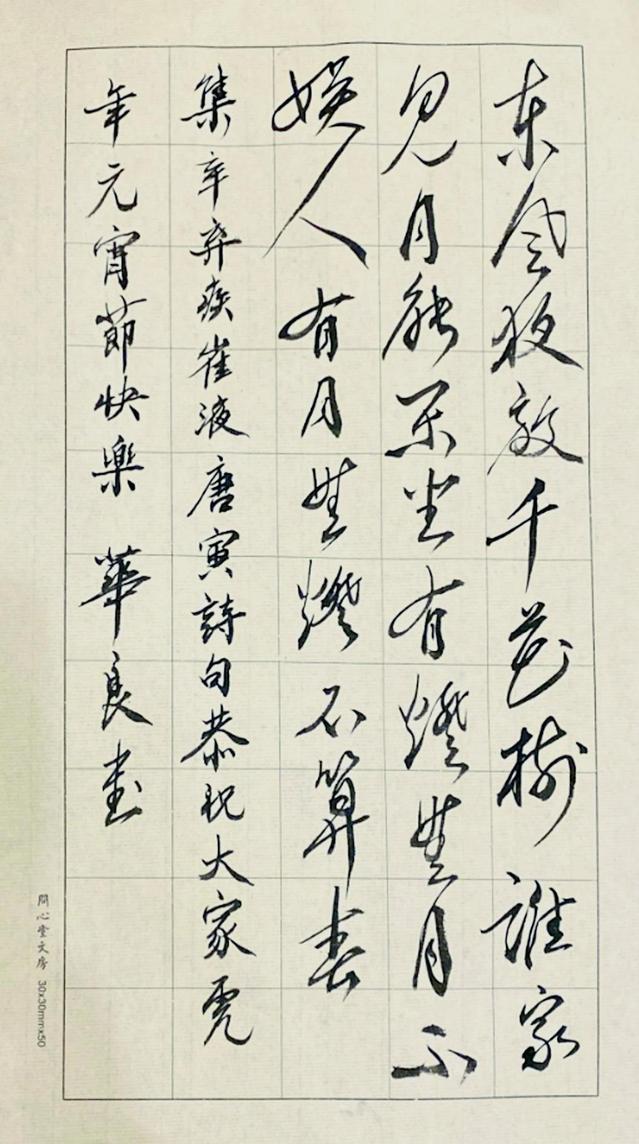 东风夜放千花树谁家
见月能闲坐有灯無月不
娱人有月無灯不算春
集辛弃疾崔液唐寅詩句恭祝大家虎
年元宵節快樂 華良書
問心堂文房 30x30mmx50